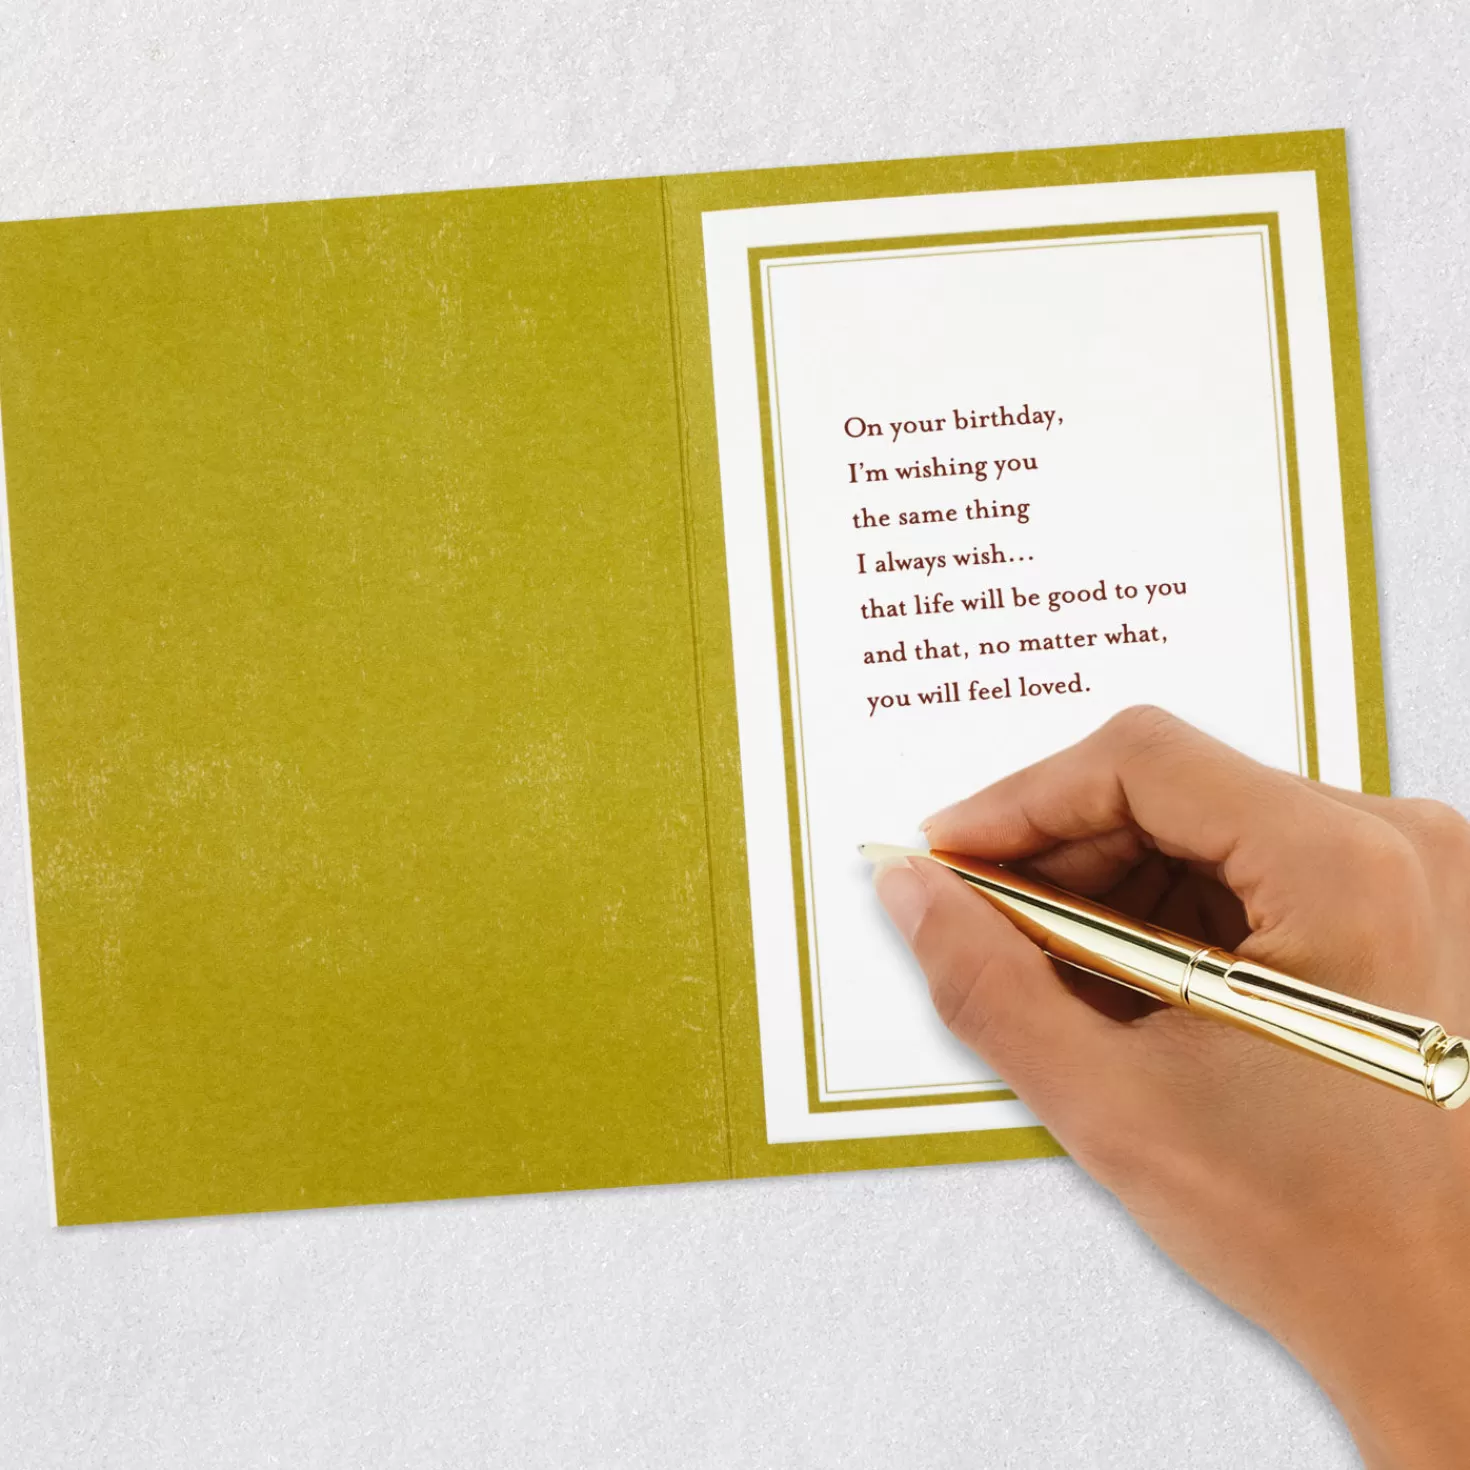 On your birthday,
I'm wishing you
the same thing
I always wish...
that life will be good to you
and that, no matter what,
you will feel loved.